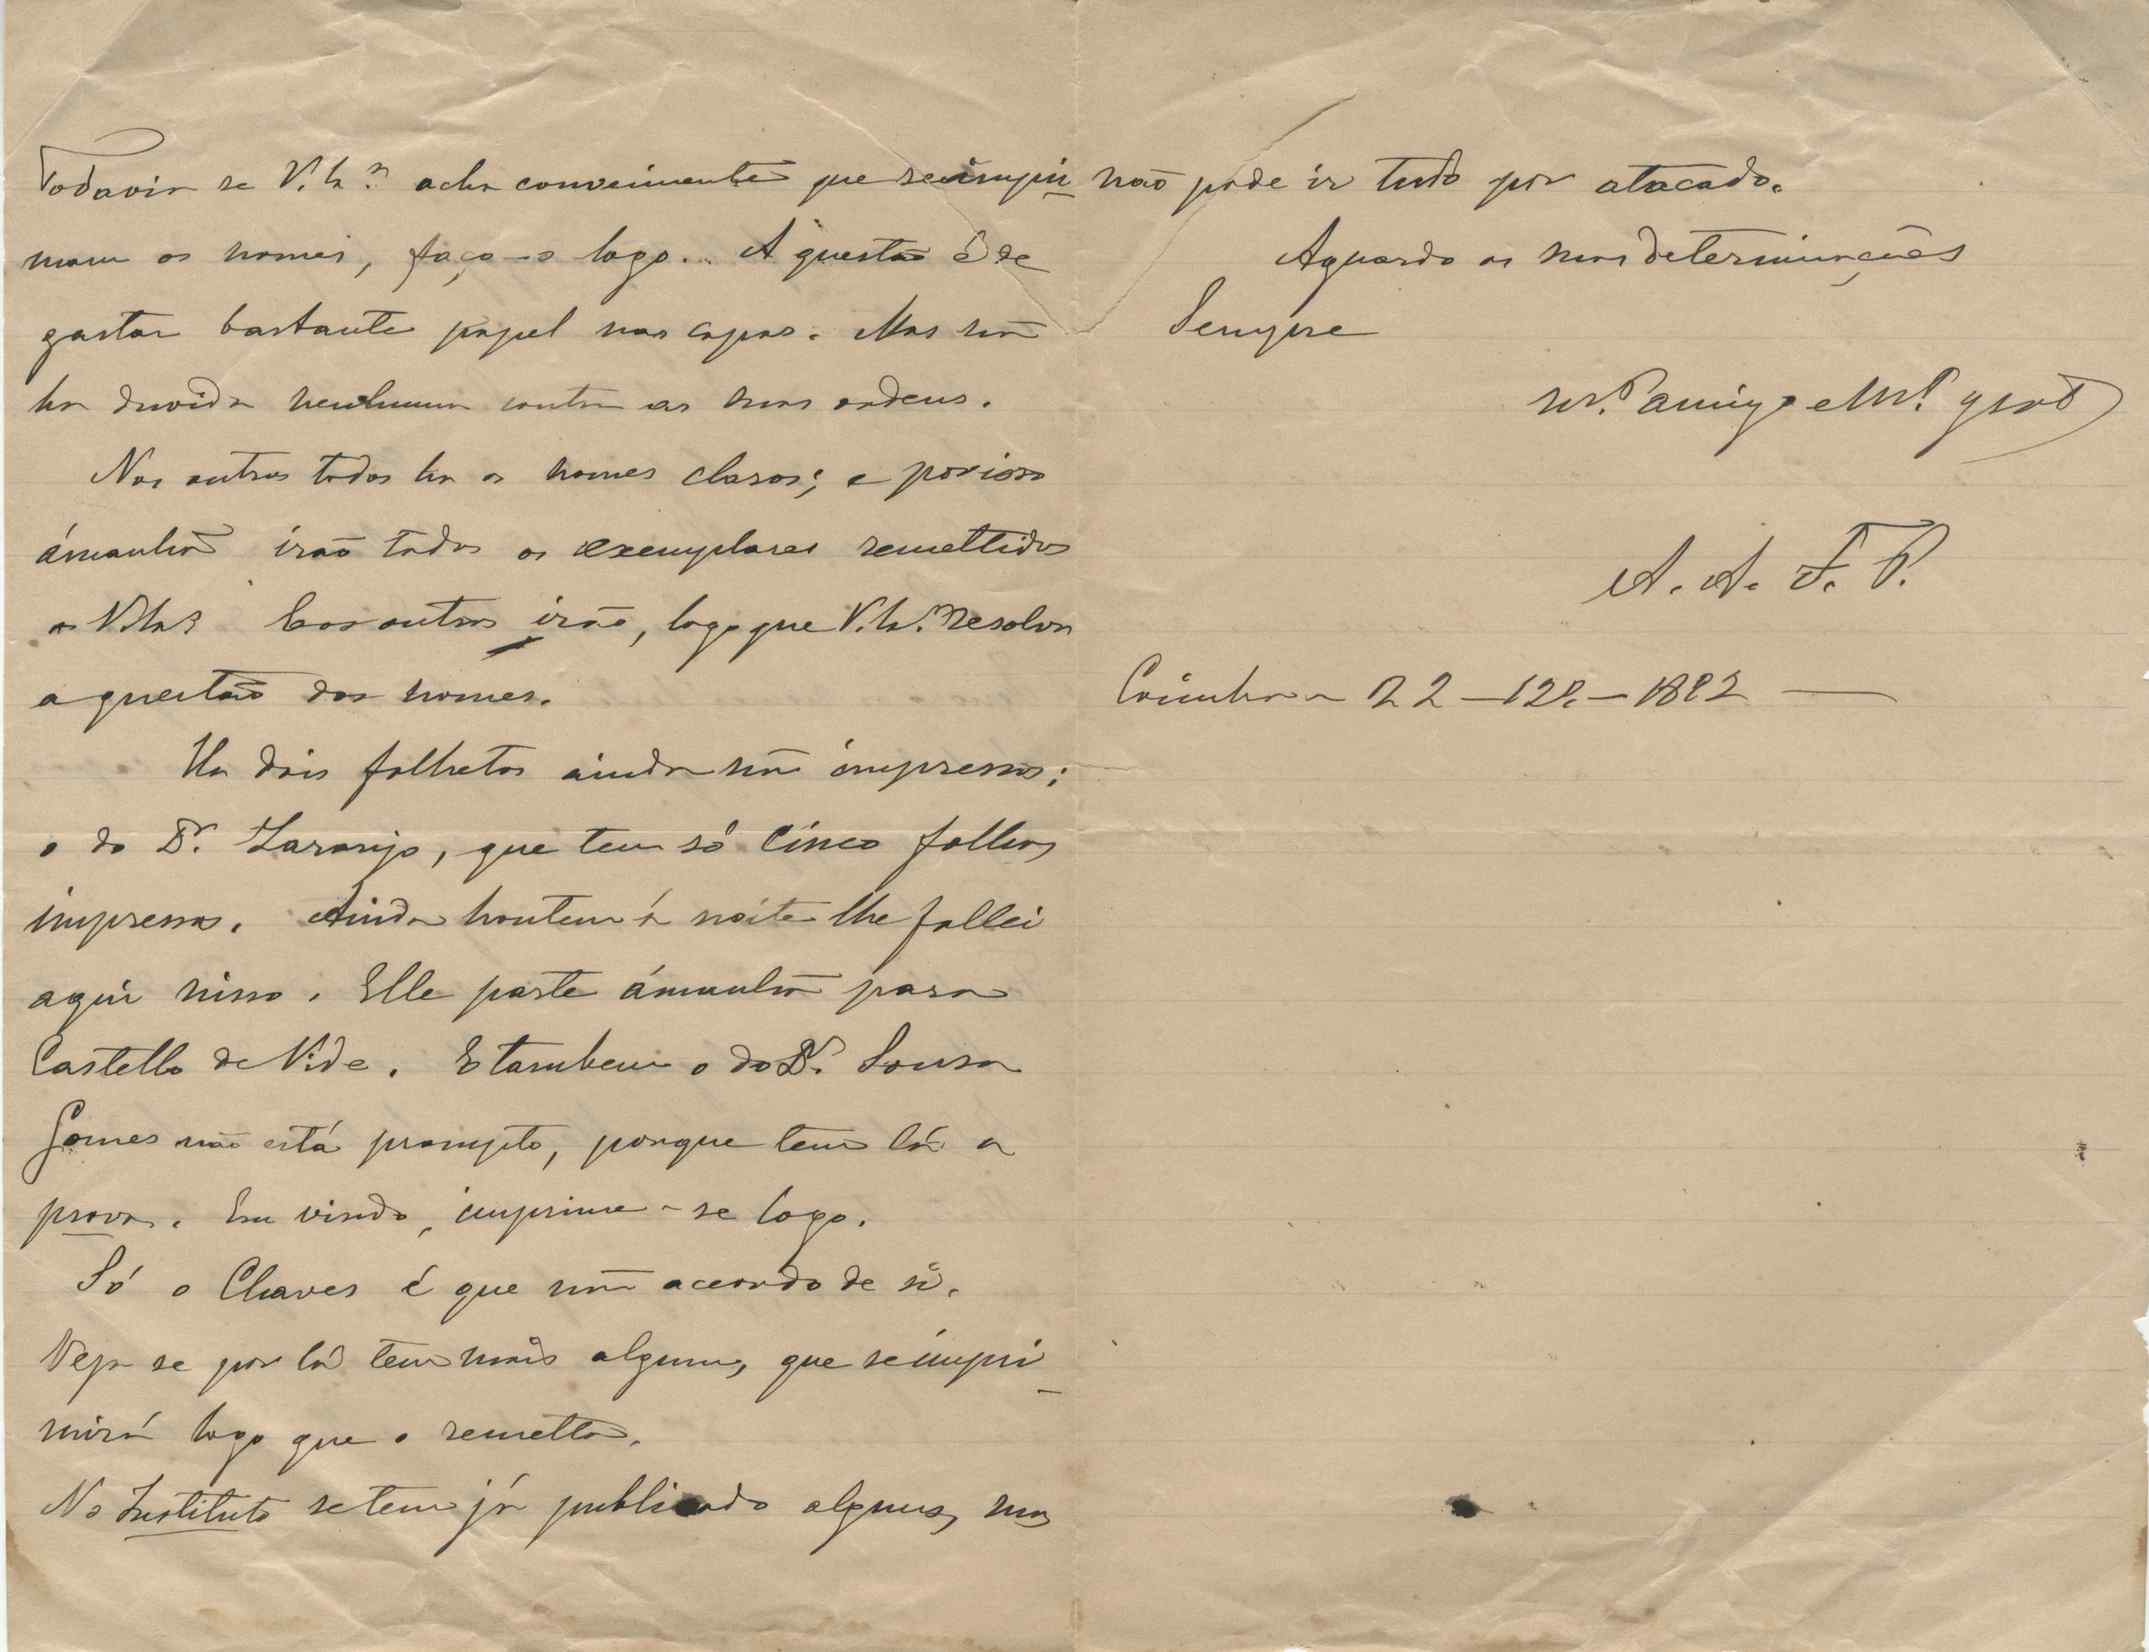 Todavia se V. Ex.ª acha conveniente que se impri-
mam os nomes, faço-o logo. A questão é de
gastar bastante papel nas capas. Mas não
ha duvida nenhuma contra as suas ordens.
Nos outros todos ha os nomes claros; e por isso
ámanhã irão todos os exemplares remettidos
a V. Ex.ª E os outros irão, logo que V. Ex.ª resolva
a questão dos nomes.
Ha dois folhetos ainda não impressos:
o do Dr. Laranjo, que tem só cinco folhas
impressas. Ainda hontem á noite lhe fallei
aqui nisso. Elle parte ámanhã para
Castello de Vide. E tambem o do Dr. Sousa
Gomes não está prompto, porque tem lá a
prova. Em vindo, imprime-se logo.
Só o Chaves é que não accordo de si.
Veja se por lá tem mais algum, que se impri-
mirá logo que o remetta.
No Instituto se tem já publicado alguns, mas
não póde ir tudo por atacado.
Aguardo as suas determinações
Sempre
am.º e
A. A. F. P.
Coimbra 22-12-1892